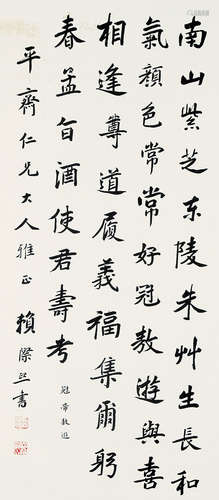 南山紫芝東陵朱艸生長和
氣顏色常常好冠敖遊與喜
相逢尊道履義福集爾躬
春孟旨酒使君壽考
冠帶敖遊
平齋仁兄大人雅正 賴際熙書